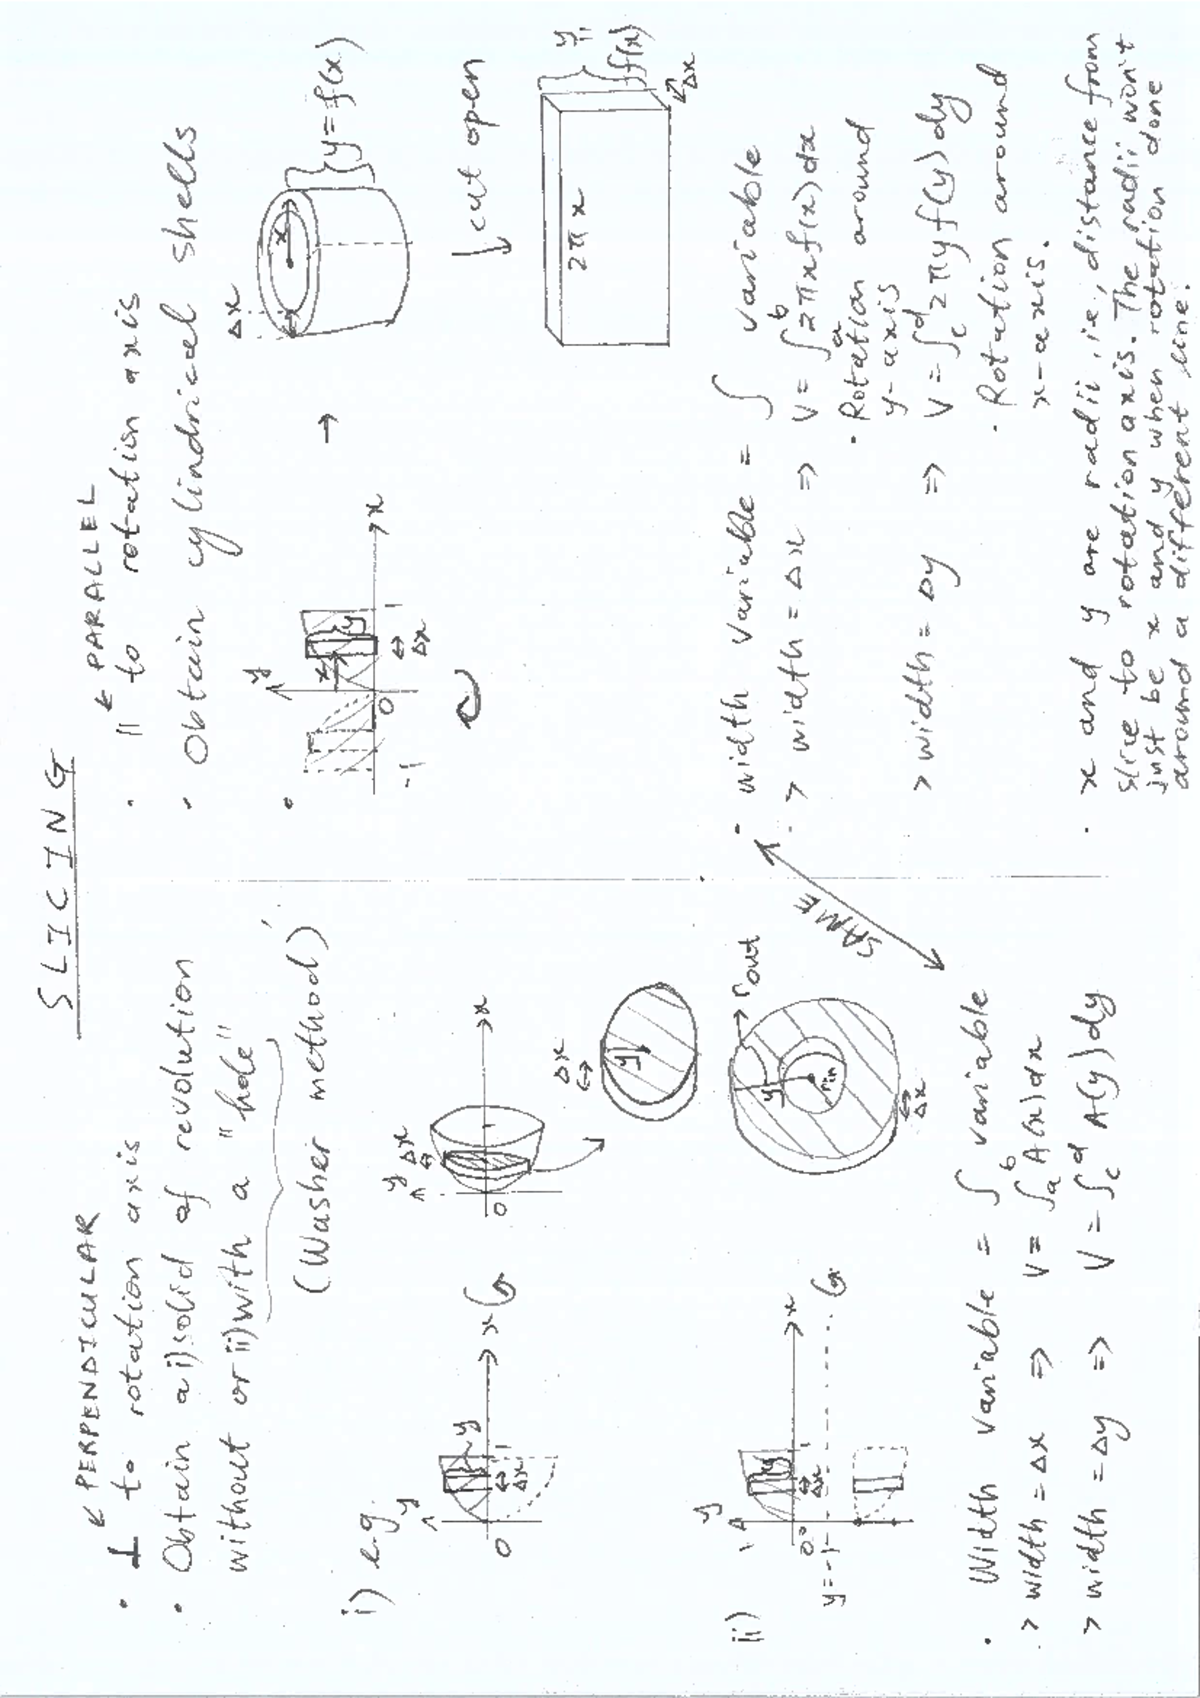 SLICING
↙ PERPENDICULAR
• ⊥ to rotation axis
• Obtain a i) solid of revolution
without or ii) with a "hole"
(Washer method)
i) e.g.
y
y
x
0
1
Δx
y
x
0
Δx
Δx
y
ii)
y
1
y
x
0
1
Δx
y=-1
rout
y
rin
Δx
• Width variable = ∫ variable
> width = Δx ⇒ V = ∫ₐᵇ A(x)dx
> width = Δy ⇒ V = ∫꜀ᵈ A(y)dy
SAME
↙ PARALLEL
• || to rotation axis
• Obtain cylindrical shells
•
y
x
y
x
-1
0
1
Δx
→
Δx
x
y = f(x)
↓ cut open
2πx
y
=
f(x)
Δx
• width variable = ∫ variable
> width = Δx ⇒ V = ∫ₐᵇ 2πxf(x)dx
• Rotation around
y-axis
> width = Δy ⇒ V = ∫꜀ᵈ 2πyf(y)dy
• Rotation around
x-axis.
• x and y are radii, ie, distance from
slice to rotation axis. The radii won't
just be x and y when rotation done
around a different line.